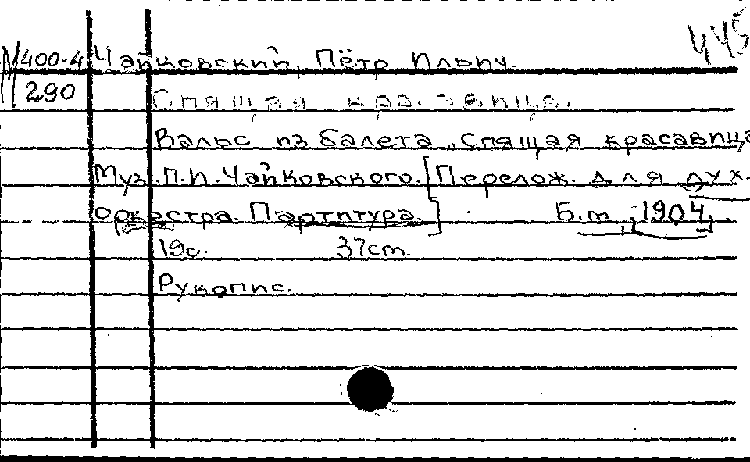 445
М400-4 Чайковский, Пётр Ильич.
290 Спящая красавица.
Вальс из балета „Спящая красавица
Муз. П.И. Чайковского. [Перелож. для дух.
оркестра. Партитура.] Б.м., [1904]
19с. 37cm.
Рукопис.